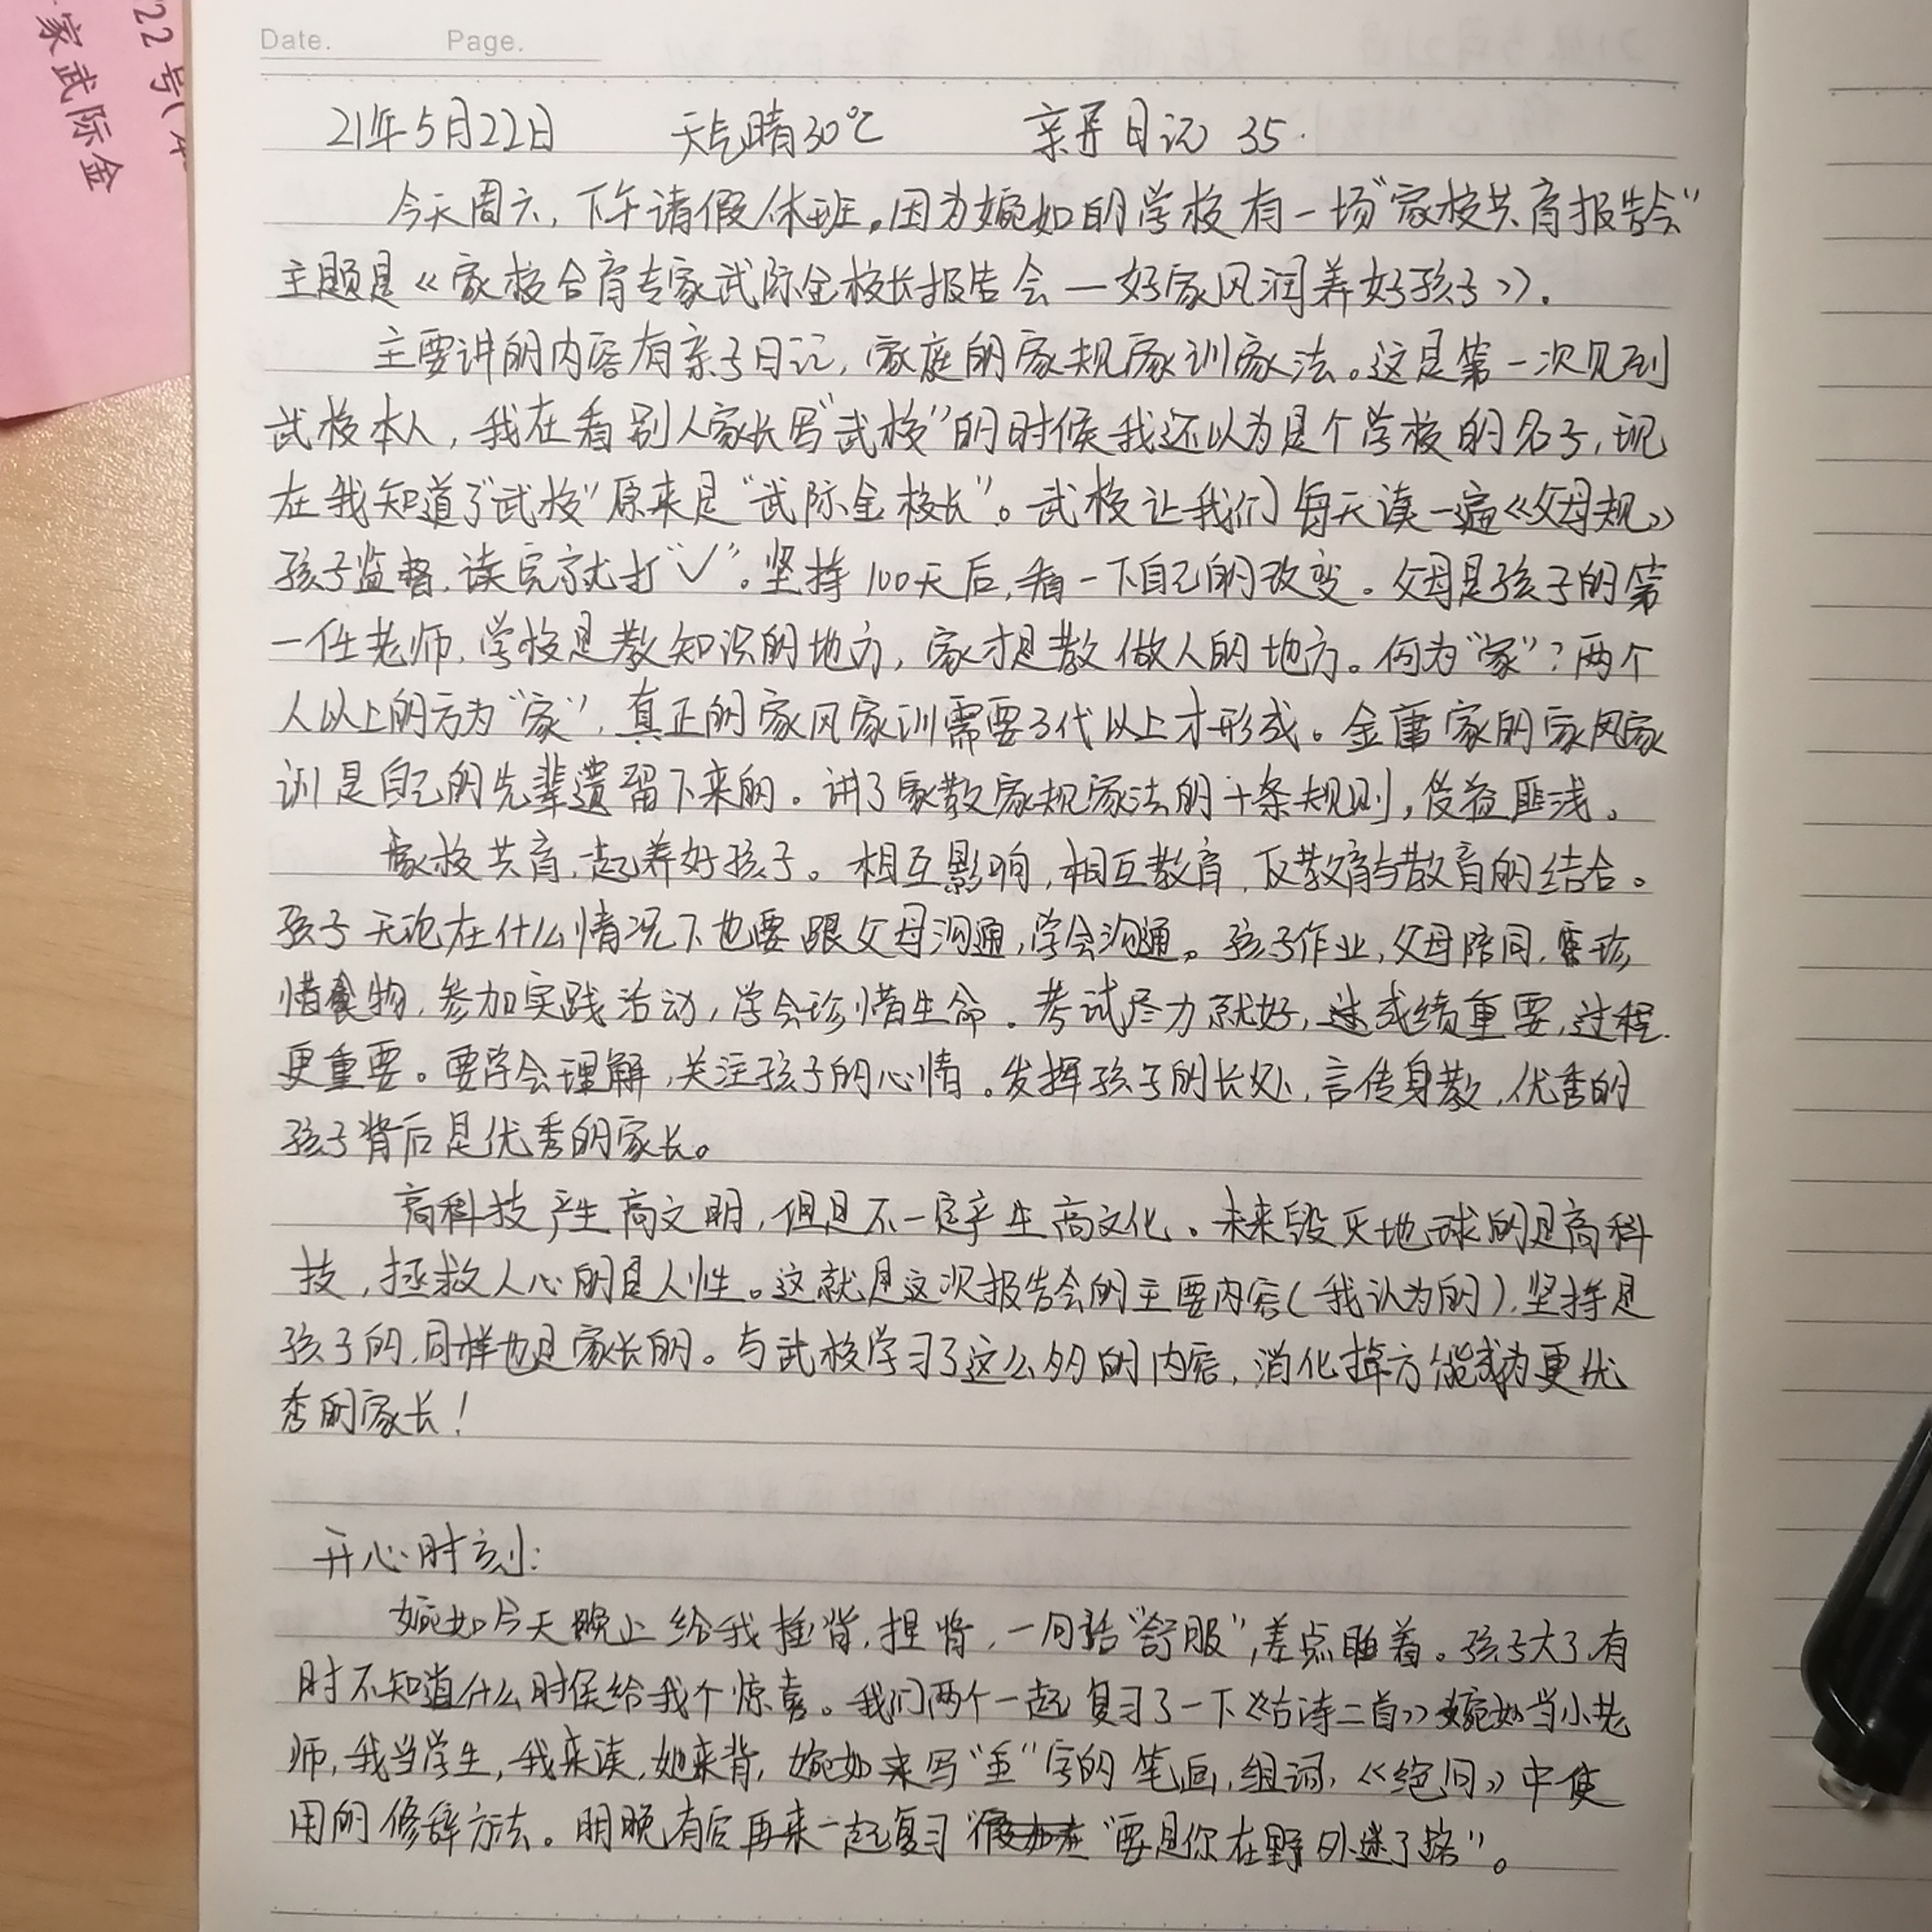 22号(
家武际金
Date.	Page.
21年5月22日 天气晴30℃ 亲子日记 35.
今天周六,下午请假休班。因为婉如的学校有一场“家校共育报告会”
主题是《家校合育专家武际金校长报告会一好家风润养好孩子》.
主要讲的内容有亲子日记,家庭的家规家训家法。这是第一次见到
武校本人,我在看别人家长写“武校”的时候我还以为是个学校的名子,现
在我知道了“武校”原来是“武际金校长”。武校让我们每天读一遍《父母规》
孩子监督,读完就打“✓”。坚持100天后,看一下自己的改变。父母是孩子的第
一任老师,学校是教知识的地方,家才是教做人的地方。何为“家”?两个
人以上的方为“家”,真正的家风家训需要3代以上才形成。金庸家的家风家
训是自己的先辈遗留下来的。讲了家教家规家法的十条规则,受益匪浅。
家校共育,一起养好孩子。相互影响,相互教育,反教育与教育的结合。
孩子无论在什么情况下也要跟父母沟通,学会沟通。孩子作业,父母陪同,珍
惜食物,参加实践活动,学会珍惜生命。考试尽力就好,成绩重要,过程
更重要。要学会理解,关注孩子的心情。发挥孩子的长处,言传身教,优秀的
孩子背后是优秀的家长。
高科技产生高文明,但是不一定产生高文化。未来毁灭地球的是高科
技,拯救人心的是人性。这就是这次报告会的主要内容(我认为的),坚持是
孩子的,同样也是家长的。与武校学习了这么多的内容,消化掉方能成为更优
秀的家长!
开心时刻:
婉如今天晚上给我捶背,捏背,一句话“舒服”,差点睡着。孩子大了,有
时不知道什么时侯给我个惊喜。我们两个一起复习了一下《古诗二首》婉如当小老
师,我当学生,我来读,她来背,婉如来写“垂”字的笔画,组词,《绝句》中使
用的修辞方法。明晚有后再来一起复习“要是你在野外迷了路”。